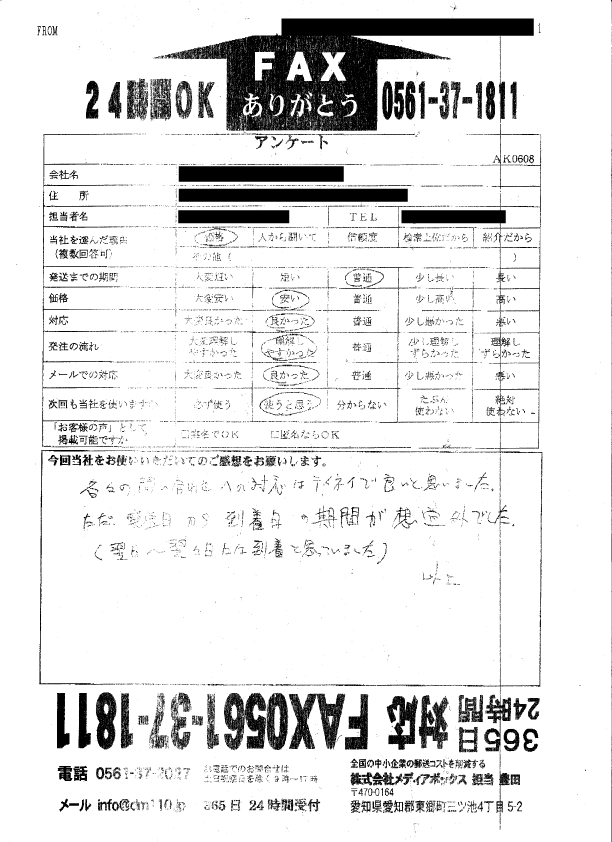 FROM 1
24時間OK FAX ありがとう 0561-37-1811
アンケート
AK0608
会社名
住 所
担当者名 TEL
当社を選んだ理由 (複数回答可) 価格 人から聞いて 信頼度 検索上位だから 紹介だから
その他 ( )
発送までの期間 大変短い 短い 普通 少し長い 長い
価格 大変安い 安い 普通 少し高い 高い
対応 大変良かった 良かった 普通 少し悪かった 悪い
発注の流れ 大変理解しやすかった 理解しやすかった 普通 少し理解しずらかった 理解しずらかった
メールでの対応 大変良かった 良かった 普通 少し悪かった 悪い
次回も当社を使いますか 必ず使う 使うと思う 分からない たぶん使わない 絶対使わない
「お客様の声」として掲載可能ですか □実名でOK □匿名ならOK
今回当社をお使いいただいてのご感想をお願いします。
各々の問い合わせへの対応はテイネイで良いと思いました。
ただ、発送日から到着日の期間が想定外でした。
(翌日〜翌々日には到着と思っていました)
以上
365日 24時間 対応 FAX0561-37-1811
電話 0561-37-2027 お電話でのお問合せは 土日祝祭日を除く9時〜17時
全国の中小企業の郵送コストを削減する
株式会社メディアボックス 担当 豊田
〒470-0164
メール info@dm110.jp 365日 24時間受付 愛知県愛知郡東郷町三ツ池4丁目5-2